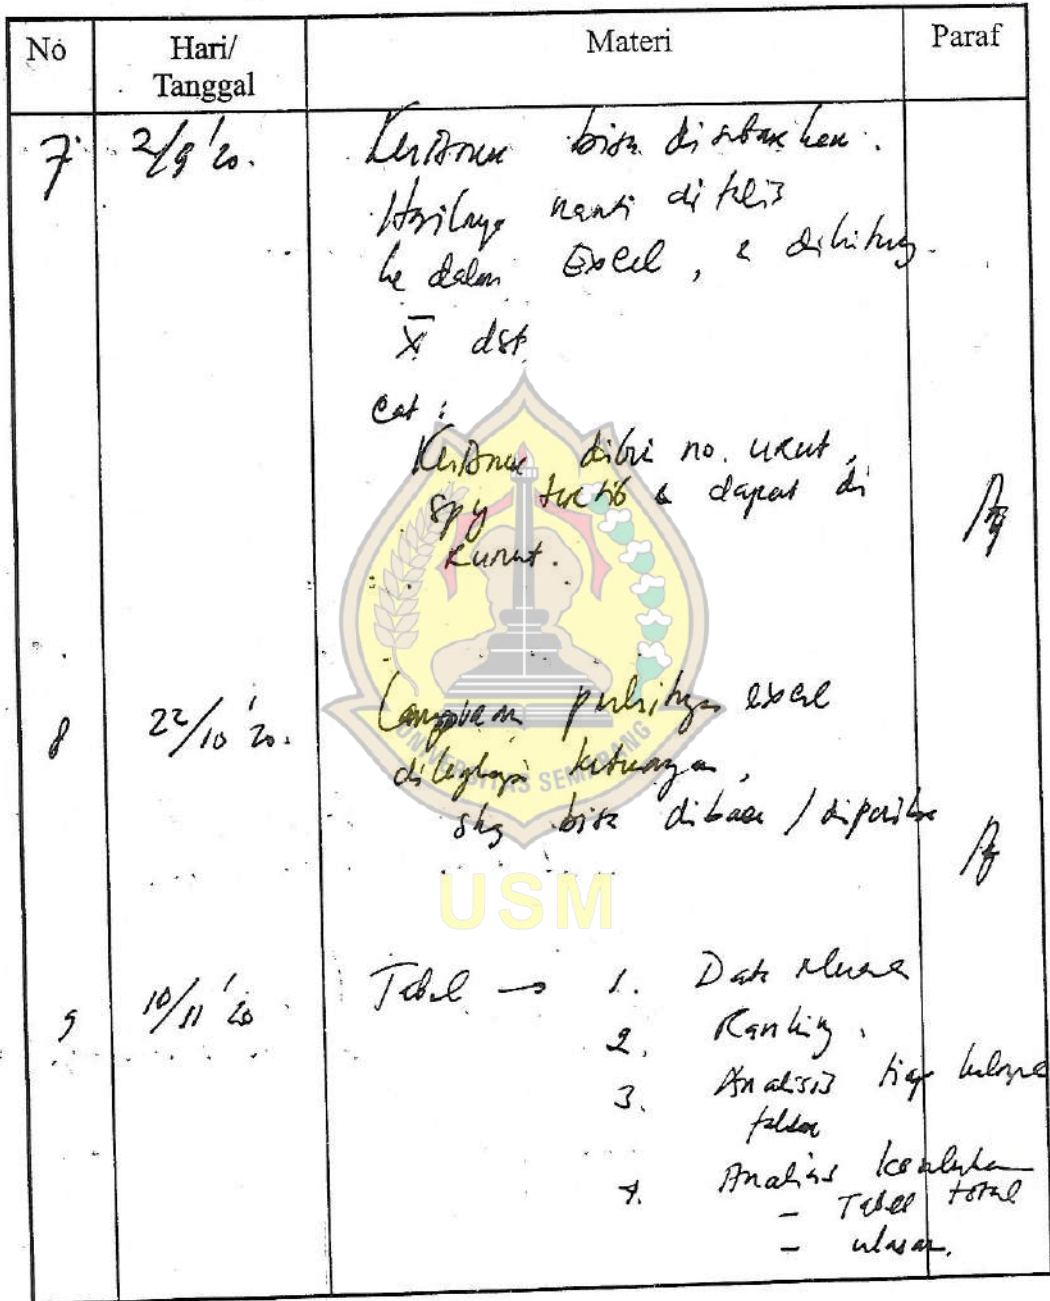 No Hari/ Materi Paraf
Tanggal
7. 2/9 '20. Kuisoner bisa disebarkan.
Hasilnya nanti ditulis
ke dalam Excel, & dihitung.
X̄ dst
Cat :
Kuisoner diberi no. urut,
spy tertib & dapat di
runut.
8 22/10 '20. Lampiran perhitungan excel
dilengkapi keterangan,
shg bisa dibaca / diperiksa
UNIVERSITAS SEMARANG
USM
9 10/11 '20 Tabel → 1. Data
2. Ranking.
3. Analisis tiap kelompok
faktor
4. Analisis keseluruhan
- Tabel total
- ulasan.